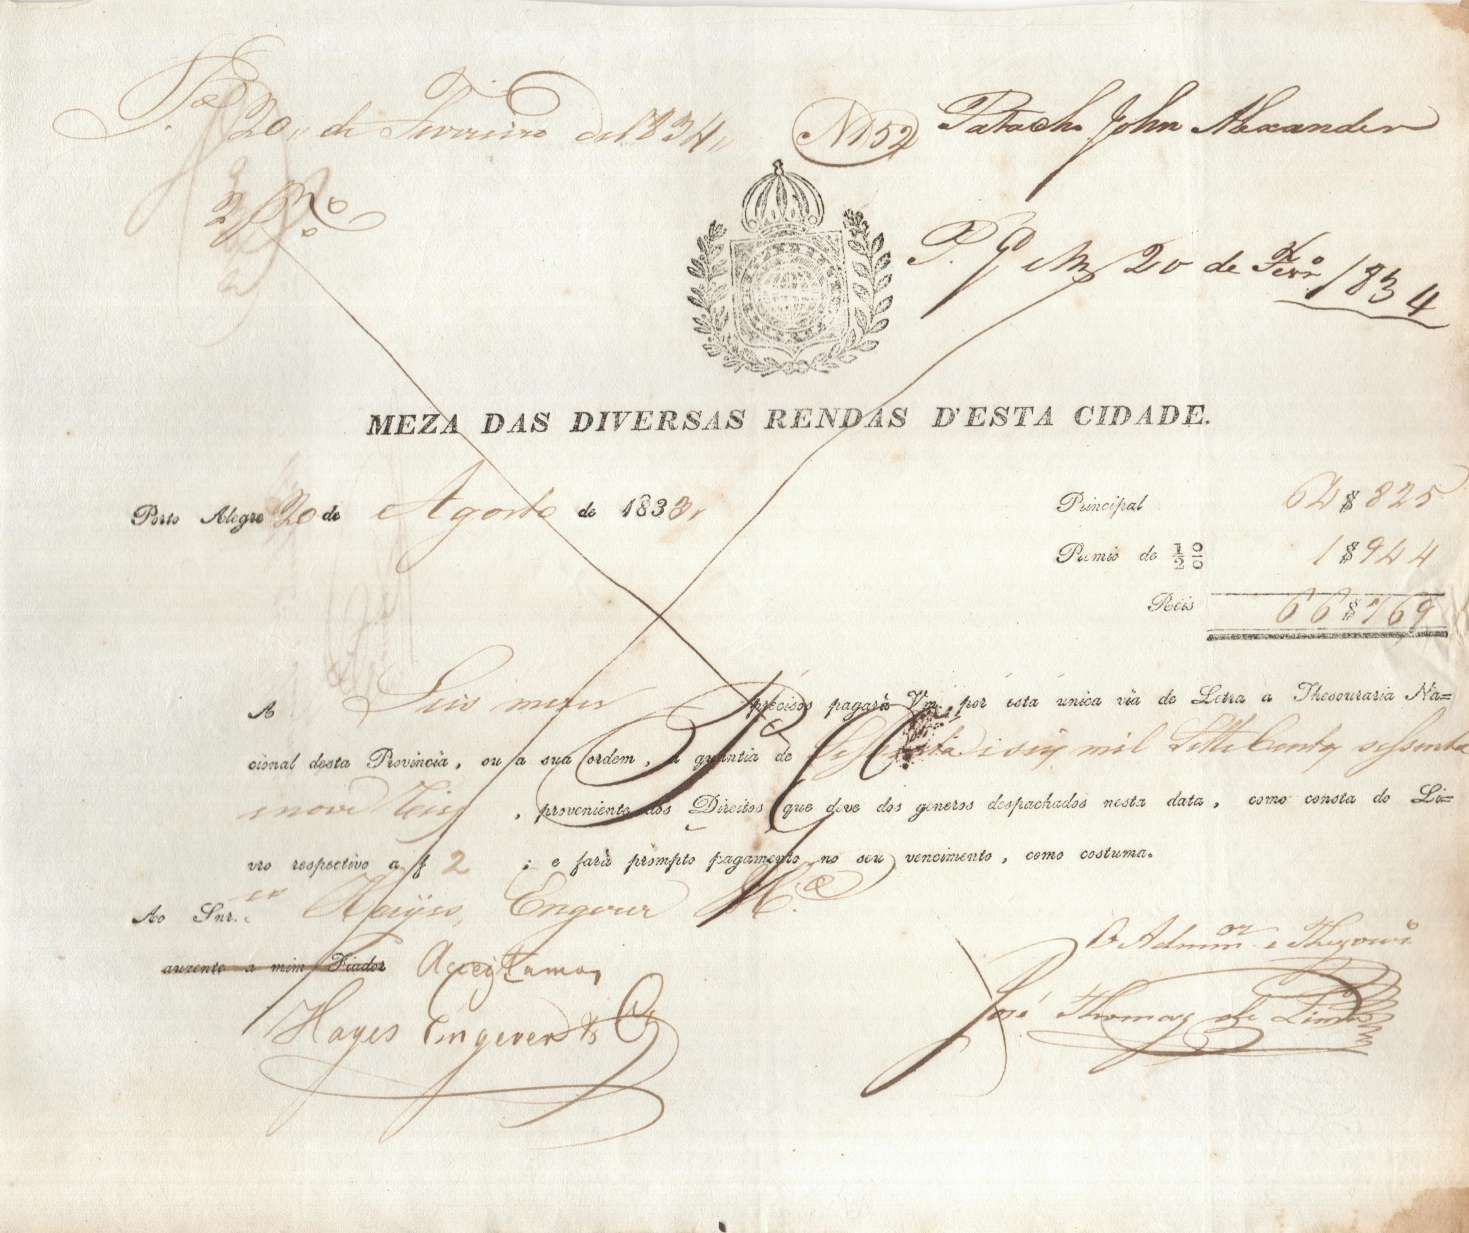 20 de Fevereiro de 1834
N 52 Patacho John Alexander
P. G em 20 de Fevro 1834
MEZA DAS DIVERSAS RENDAS D'ESTA CIDADE.
Porto Alegre 20 de Agosto de 1833
Principal 64$825
Premio de 1/2 % 1$944
Réis 66$769
A Seis mezes precisos pagará Vm. por esta única via de Letra a Thesouraria Na=
cional desta Provincia, ou a sua ordem, a quantia de Sessenta i seis mil Sette Centos sessenta
inove Reis, proveniente dos Direitos que deve dos generos despachados nesta data, como consta do Li=
vro respectivo a f 2 ; e fará prompto pagamento no seu vencimento, como costuma.
Ao Snr.es Hayes, Engerer & Ca
auzente a mim Fiador Aceitamos
Hayes Engerer & Ca
O Admin.or e Thezouro
José Thomaz de Lima